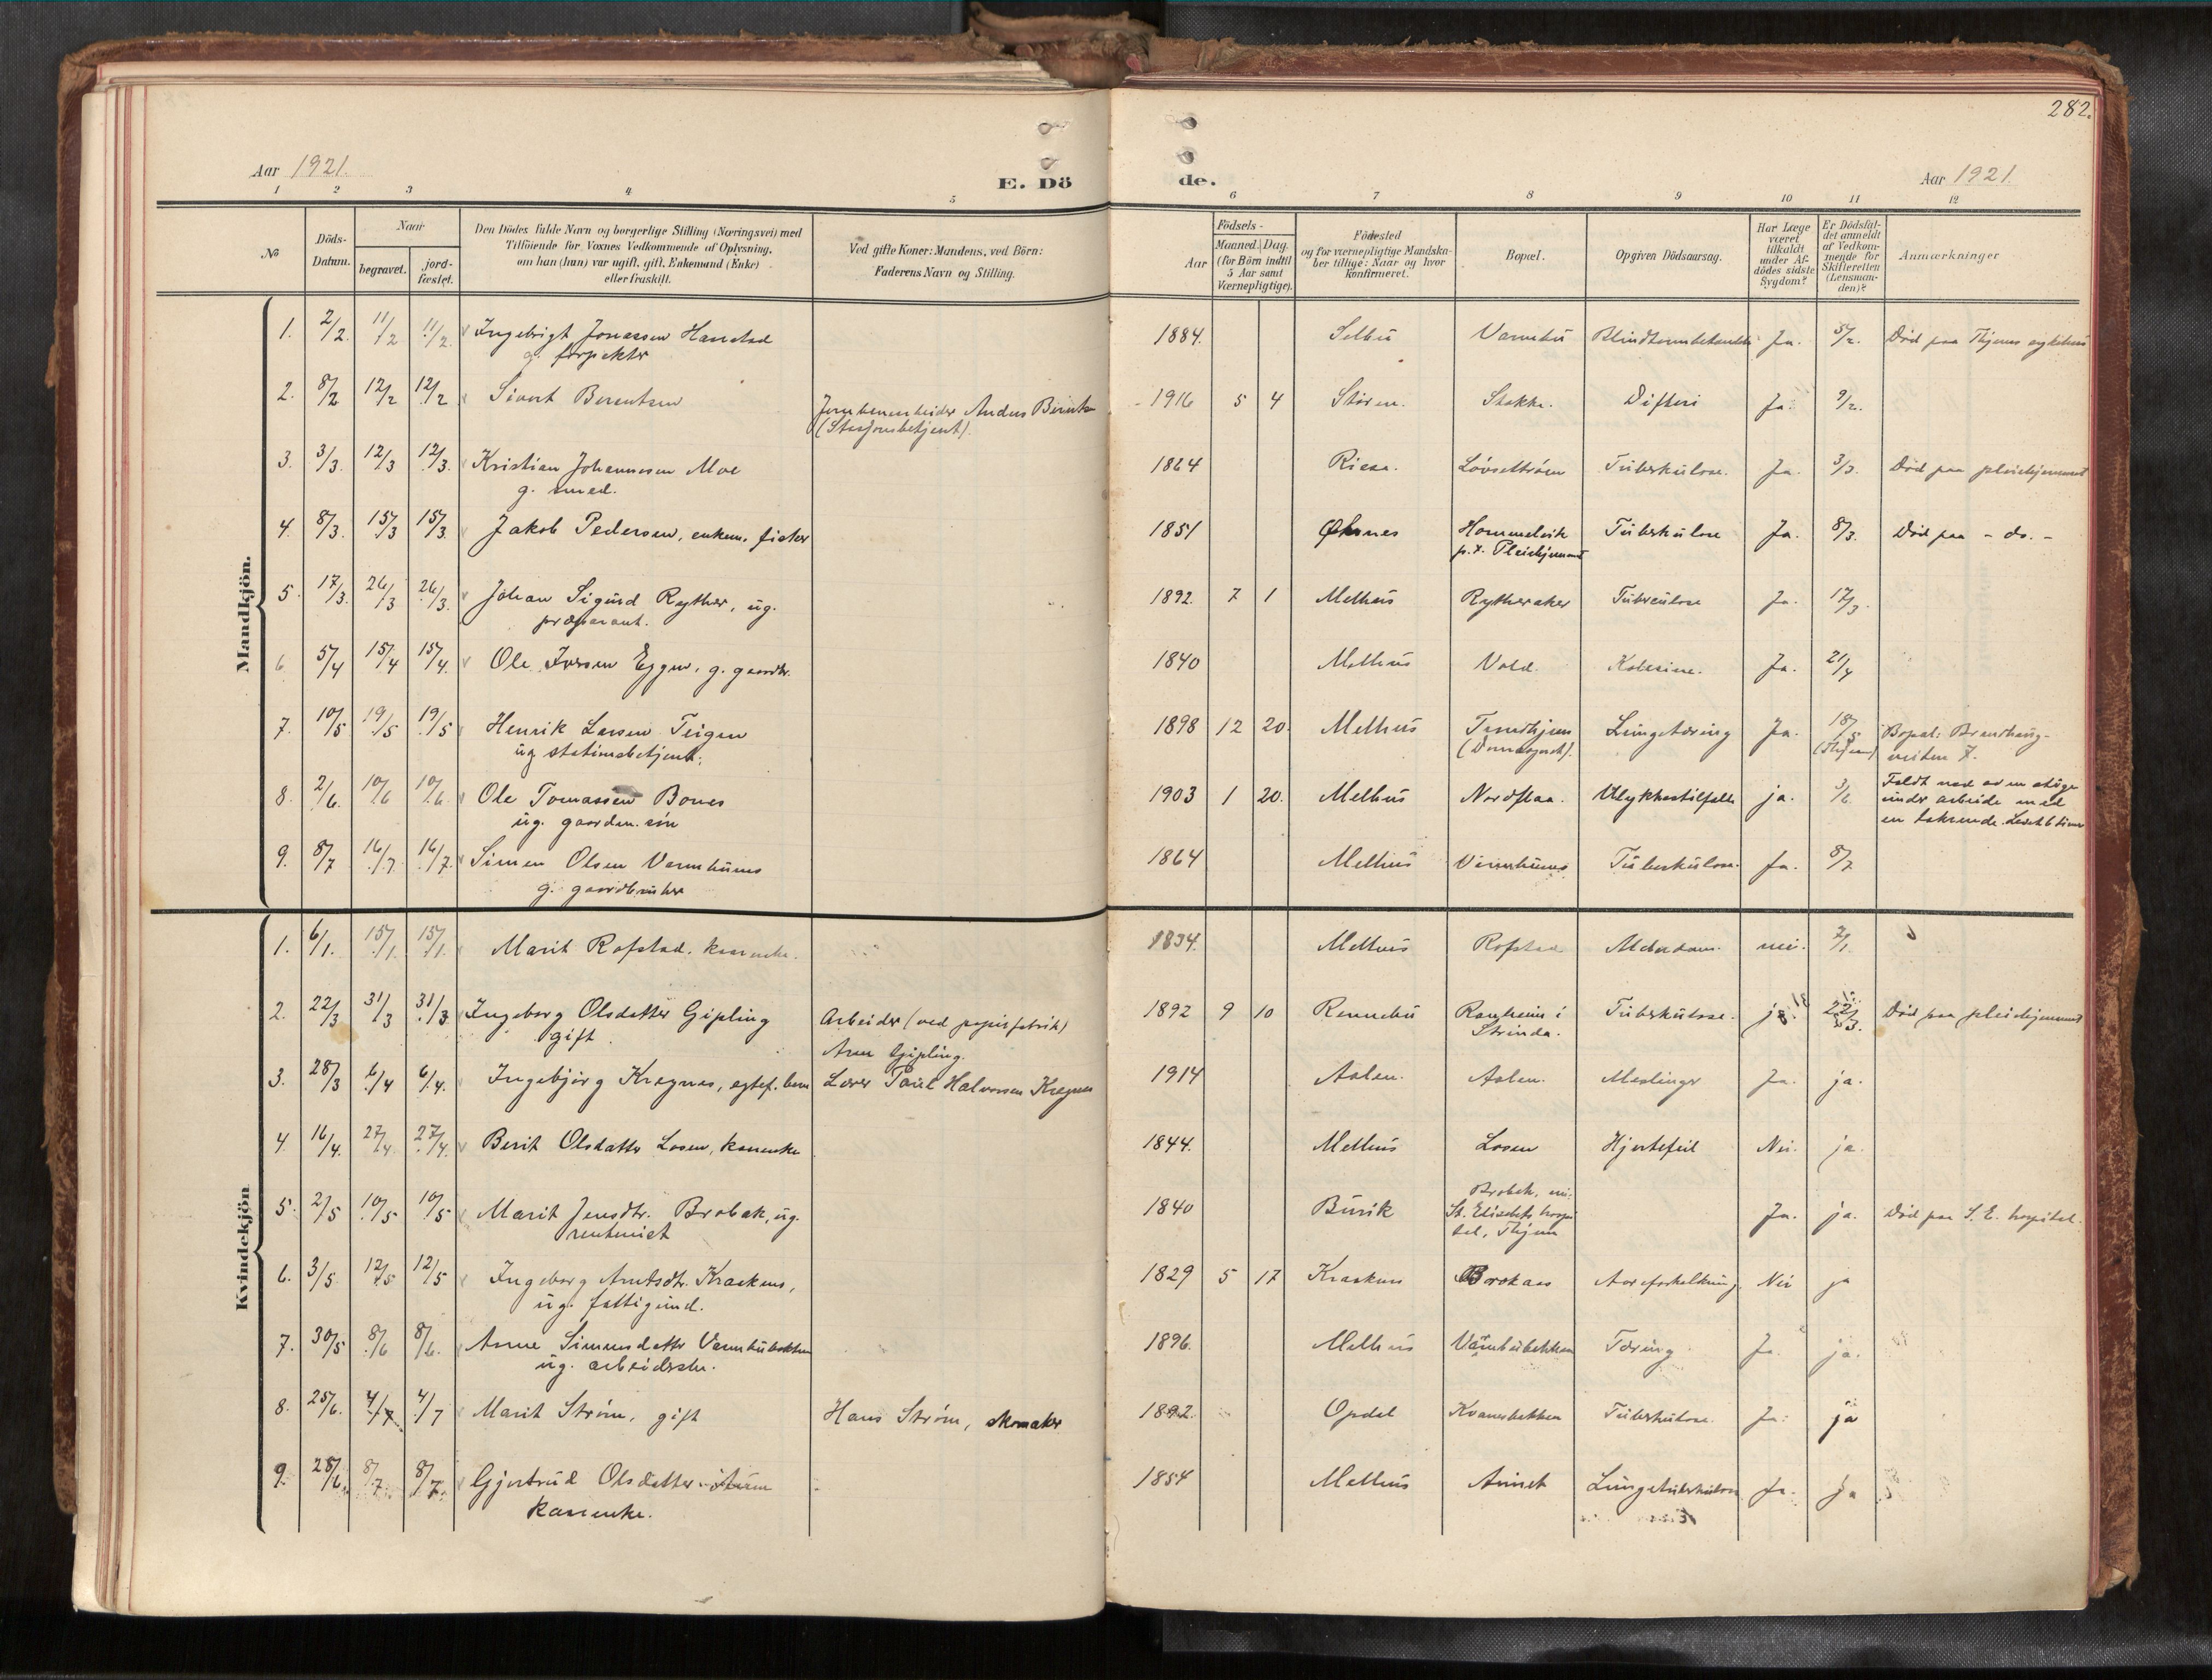 282.
Aar 1921.
E. Dö
de.
Aar 1921
1 2 3 4 5 6 7 8 9 10 11 12
No
Döds-Datum.
Naar
begravet.
jord-fæstet.
Den Dödes fulde Navn og borgerlige Stilling (Næringsvei) med
Tilföiende for Voxnes Vedkommende af Oplysning,
om han (hun) var ugift, gift, Enkemand (Enke)
eller fraskilt.
Ved gifte Koner: Mandens, ved Börn:
Faderens Navn og Stilling.
Födsels-
Aar
Maaned. Dag.
(for Börn indtil
5 Aar samt
Værnepligtige).
Födested
og for værnepligtige Mandska-
ber tillige: Naar og hvor
konfirmeret.
Bopæl.
Opgiven Dödsaarsag.
Har Læge
været
tilkaldt
under Af-
dödes sidste
Sygdom?
Er Dödsfal-
det anmeldt
af Vedkom-
mende for
Skifteretten
(Lensman-
den)?
Anmærkninger
Mandkjön.
1. 2/2 11/2 11/2 Ingebrigt Jonassen Hanstad 1884. Selbu Varmbu Ja. 5/2. Död paa Thjems sykehus
g.
2. 8/2 12/2 12/2 Sivert Berentsen 1916 5 4 Stören. Stokke. Difteri Ja. 9/2.
Jernbanearbeider Anders Berntsen
(Stasjonsbetjent).
3. 3/3. 12/3 12/3. Kristian Johannesen Moe 1864 Rissa. Løvsettrøen Tuberkulose. Ja. 3/3. Död paa pleiehjemmet
g. smed.
4. 8/3. 15/3 15/3. Jakob Pedersen, enkem. fisker 1851 Øksnes Hommelvik Tuberkulose Ja. 8/3. Död paa - do. -
p.t. Pleiehjemmet
5. 17/3. 26/3 26/3. Johan Sigurd Rygther, ug. 1892. 7 1 Melhus Rytheraker Tuberculose Ja. 17/3.
præparant.
6 5/4 15/4 15/4. Ole Iversen Eggen, g. gaardbr. 1840 Melhus Vold. Ja. 21/4
7. 10/5 19/5 19/5 Henrik Larsen Teigen 1898 12 20. Melhus Trondhjem Lungetæring Ja. 18/5 Bopæl:
ug stationsbetjent.
8. 2/6. 10/6 10/6. Ole Tomassen Bones 1903 1 20. Melhus Nordflaa. Ulykkestilfælle ja. 3/6. Faldt ned av en stige
ug. gaardm. søn under arbeide med
9. 8/7 16/7. 16/7. Simen Olsen Varmbumo 1864 Melhus Varmbumo Tuberkulose. Ja. 8/7
g. gaardbruker
Kvindekjön
1. 6/1. 15/1 15/1. Marit Rofstad. kaarenke. 1834. Melhus Rofstad Alderdom. nei. 7/1.
2. 22/3 31/3 31/3 Ingeborg Olsdatter Gipling 1892 9 10 Rennebu Ranheim i Tuberkulose. ja. 22/3. Död paa pleiehjemmet
gift Strinda.
Arbeider (ved papirfabrik)
Arne Gipling.
3. 28/3 6/4 6/4. Ingebjørg Kregnes, egtef. barn Lærer Paul Halvorsen Kregnes 1914 Aalen. Aalen. Meslinger Ja. ja.
4 16/4. 27/4. 27/4. Berit Olsdatter Losen, kaarenke 1844. Melhus Losen Hjertefeil Nei. ja.
5. 2/5 10/5 10/5 Marit Jensdtr. Brobak, ug. 1840 Buvik Ja. ja. Död paa S. E. hospital.
rentenist St. Elisabets hospi
tal, Thjem
6. 3/5. 12/5 12/5 Ingeborg Arntsdtr. Kraakens, 1829 5 17 Aareforkalkning Nei ja
ug. fattigund.
7. 30/5 8/6 8/6. Anne Simensdatter Varmbubakken 1896. Melhus Varmbubakken Tæring Ja. ja.
ug. arbeiderske.
8. 25/6. 4/7 4/7 Marit Strøm, gift Hans Strøm, skomaker 1892. Opdal Kvamsbakken Tuberkulose. Ja. ja
9. 28/6. 8/7. 8/7. Gjertrud Olsdatter 1854 Melhus Aunet Lungetuberkulose Ja. ja
kaarenke.